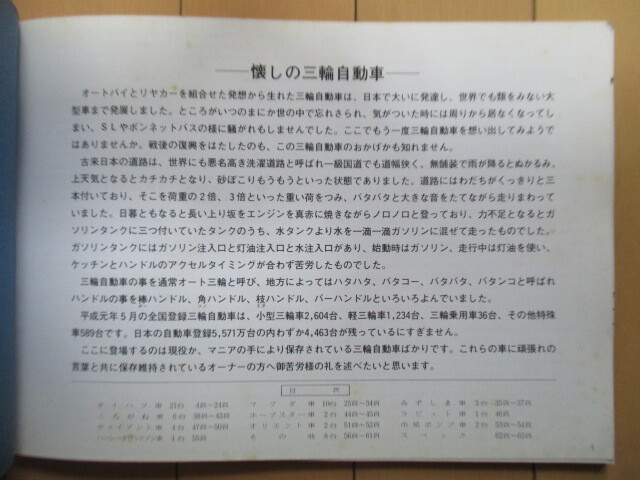 懐しの三輪自動車
オートバイとリヤカーを組合せた発想から生れた三輪自動車は、日本で大いに発達し、世界でも類をみない大
型車まで発展しました。ところがいつのまにか世の中で忘れさられ、気がついた時には周りから居なくなってし
まい、SLやボンネットバスの様に騒がれもしませんでした。ここでもう一度三輪自動車を想い出してみようで
はありませんか。戦後の復興をはたしたのも、この三輪自動車のおかげかも知れません。
古来日本の道路は、世界にも悪名高き洗濯道路と呼ばれ一級国道でも道幅狭く、無舗装で雨が降るとぬかるみ、
上天気となるとカチカチとなり、砂ぼこりもうもうといった状態でありました。道路にはわだちがくっきりと三
本付いており、そこを荷重の2倍、3倍といった重い荷をつみ、バタバタと大きな音をたてながら走りまわって
いました。日暮ともなると長い上り坂をエンジンを真赤に焼きながらノロノロと登っており、力不足となるとガ
ソリンタンクに三つ付いていたタンクのうち、水タンクより水を一滴一滴ガソリンに混ぜて走ったものでした。
ガソリンタンクにはガソリン注入口と灯油注入口と水注入口があり、始動時はガソリン、走行中は灯油を使い、
ケッチンとハンドルのアクセルタイミングが合わず苦労したものでした。
三輪自動車の事を通常オート三輪と呼び、地方によってはハタハタ、バタコー、バタバタ、バタンコと呼ばれ
ハンドルの事を棒ハンドル、角ハンドル、枝ハンドル、バーハンドルといろいろよんでいました。
平成元年5月の全国登録三輪自動車は、小型三輪車2,604台、軽三輪車1,234台、三輪乗用車36台、その他特殊
車589台です。日本の自動車登録5,571万台の内わずか4,463台が残っているにすぎません。
ここに登場するのは現役か、マニアの手により保存されている三輪自動車ばかりです。これらの車に頑張れの
言葉と共に保存維持されているオーナーの方へ御苦労様の礼を述べたいと思います。
目 次
ダイハツ 車 21台 4頁〜24頁
マツダ 車 10台 25頁〜34頁
みずしま 車 3台 35頁〜37頁
くろがね 車 6台 38頁〜43頁
ホープスター 車 2台 44頁〜45頁
ラビット 車 1台 46頁
ヂャイアント 車 4台 47頁〜50頁
オリエント 車 2台 51頁〜52頁